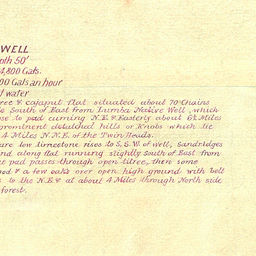 WELL
pth 50'
4,800 Gals.
00 Gals an hour
d water
ree & cajaput flat situated about 70 Chains
o South of East from Lumba Native Well, which
ose to pad running N.E & Easterly about 6½ Miles
prominent detatched hills or Knobs which lie
4 Miles N.N.E. of the Twin Heads.
are low limestone rises to S.S.W. of well, Sandridges
nd along flat running slightly South of East from
e pad passes through open titree, then some
od & a few oaks over open high ground with belt
s to the N.E & at about 4 Miles through North side
forest.